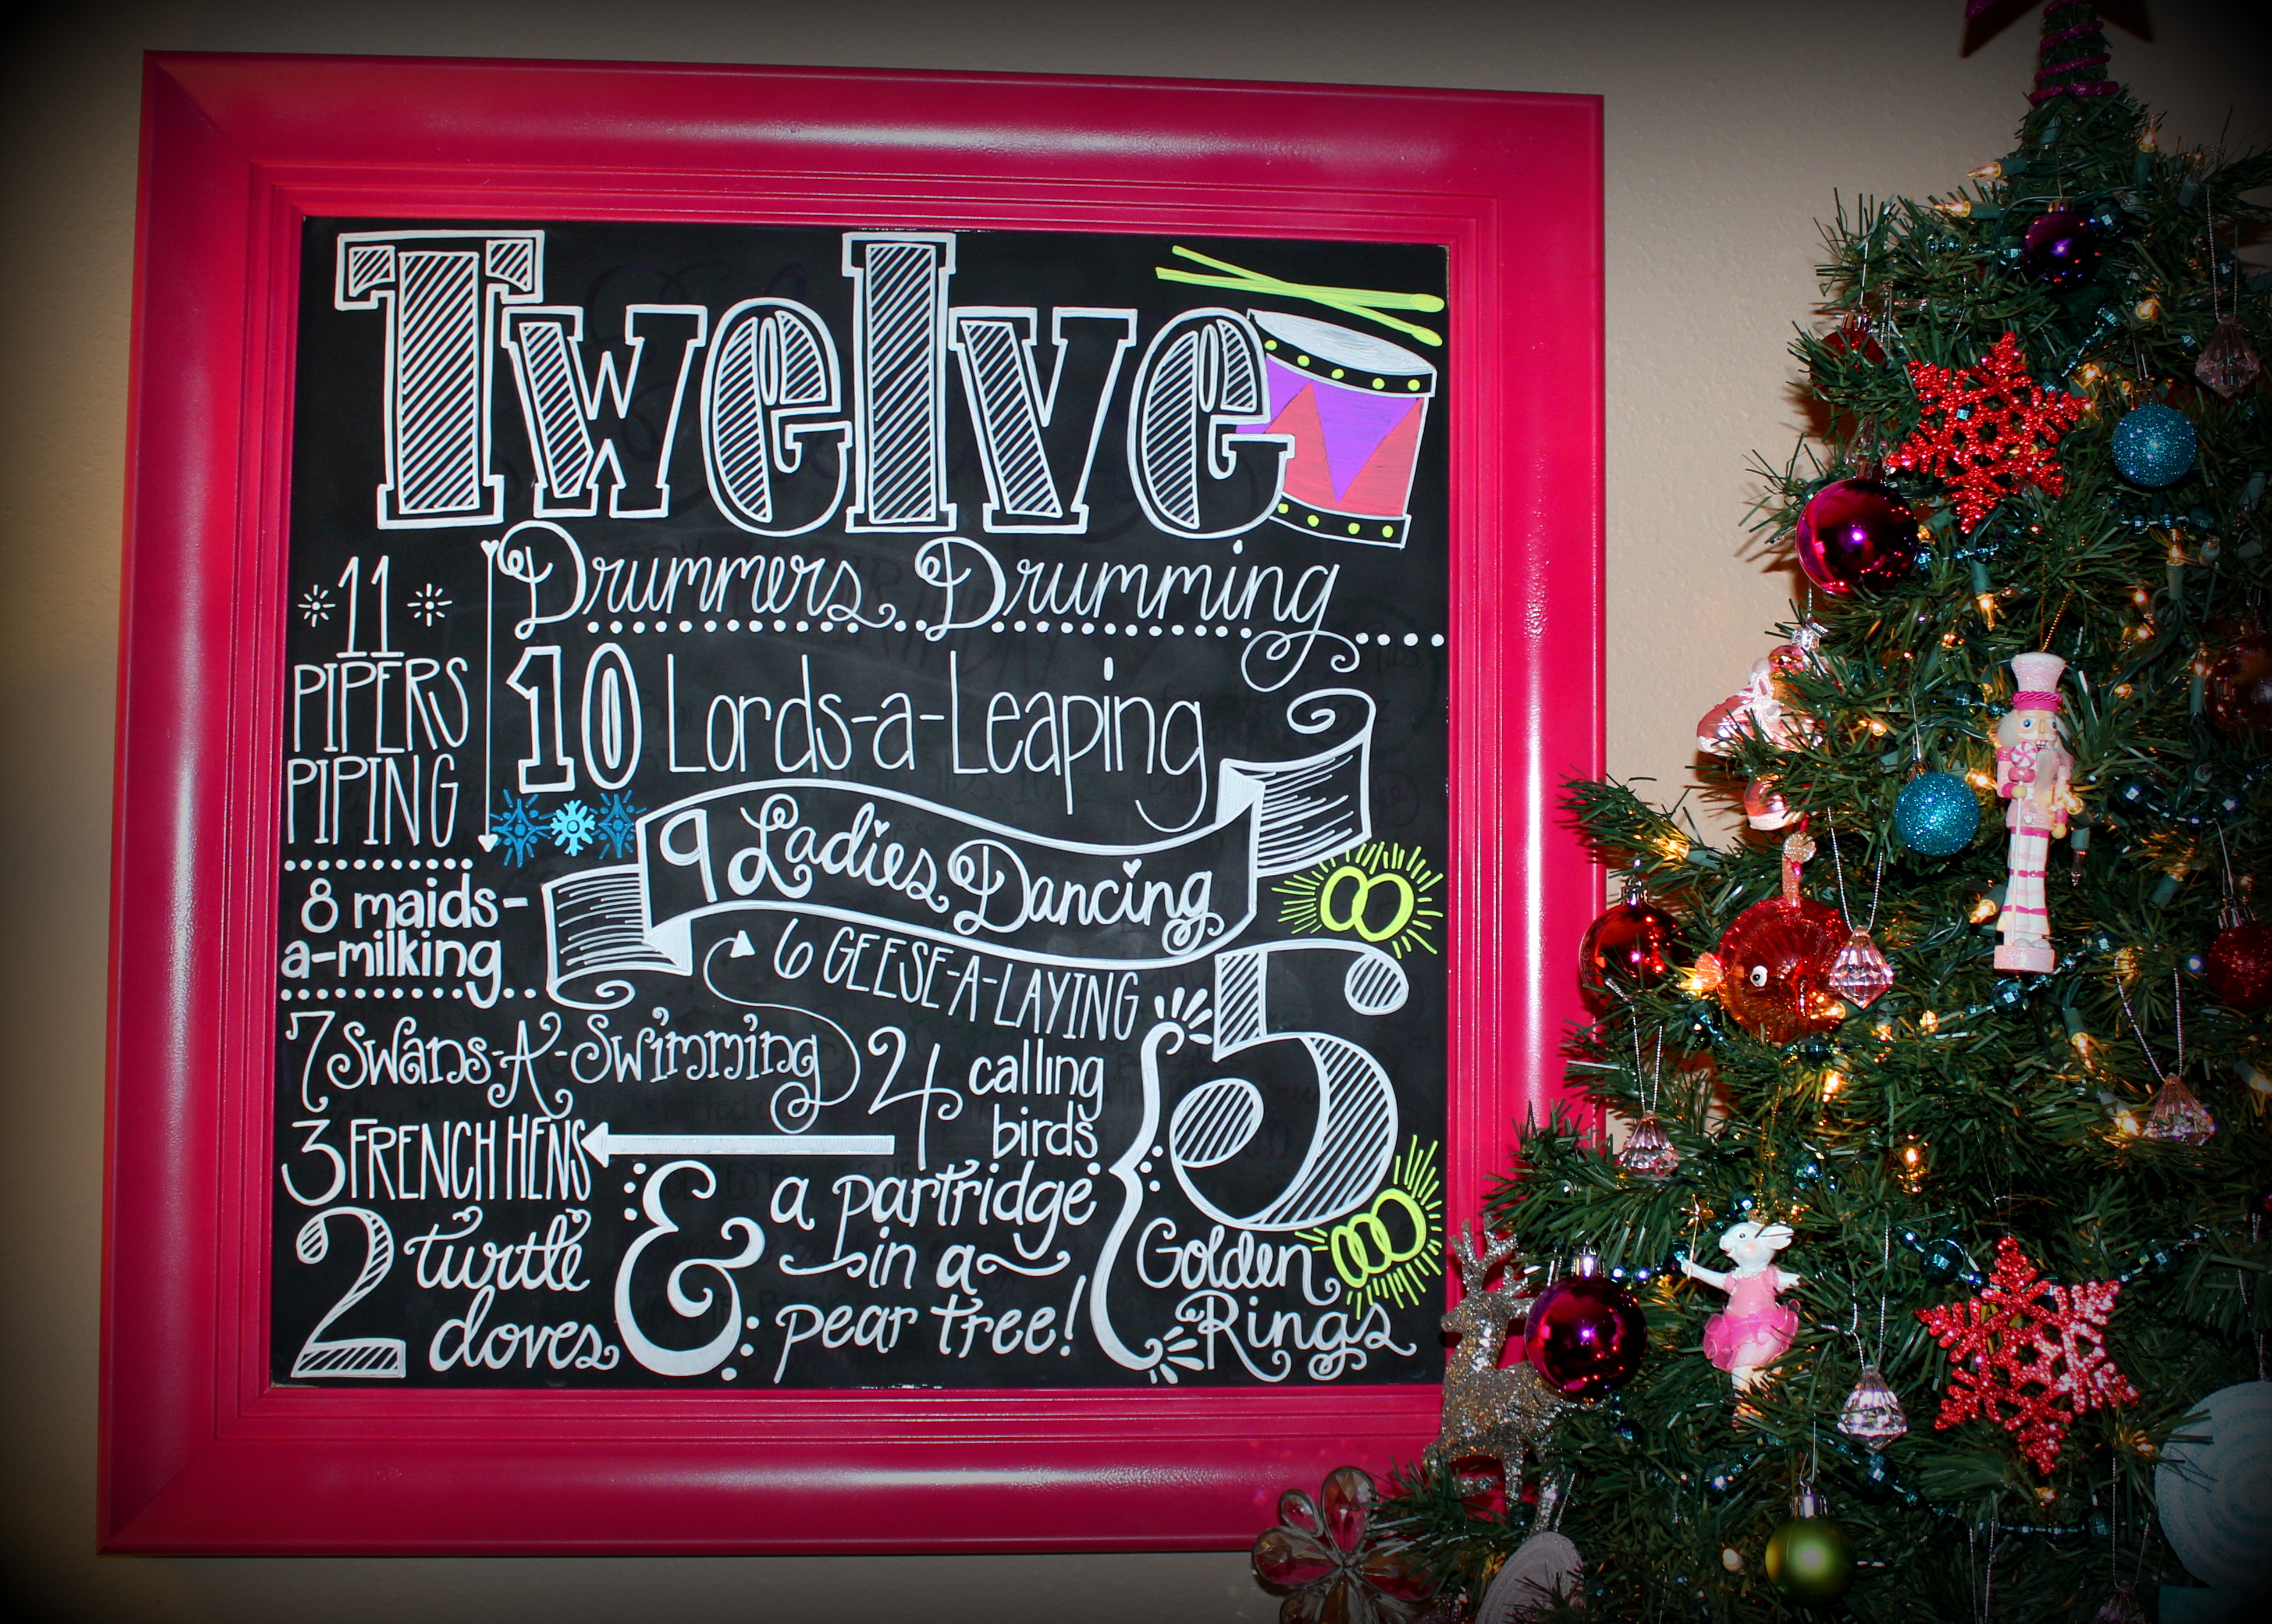 Twelve
Drummers Drumming
11
PIPERS
PIPING
10 Lords-a-Leaping
9 Ladies Dancing
8 maids-
a-milking
7 Swans-A-Swimming
6 GEESE-A-LAYING
5
Golden
Rings
4 calling
birds
3 FRENCH HENS
2 turtle
doves
& a partridge
in a
pear tree!